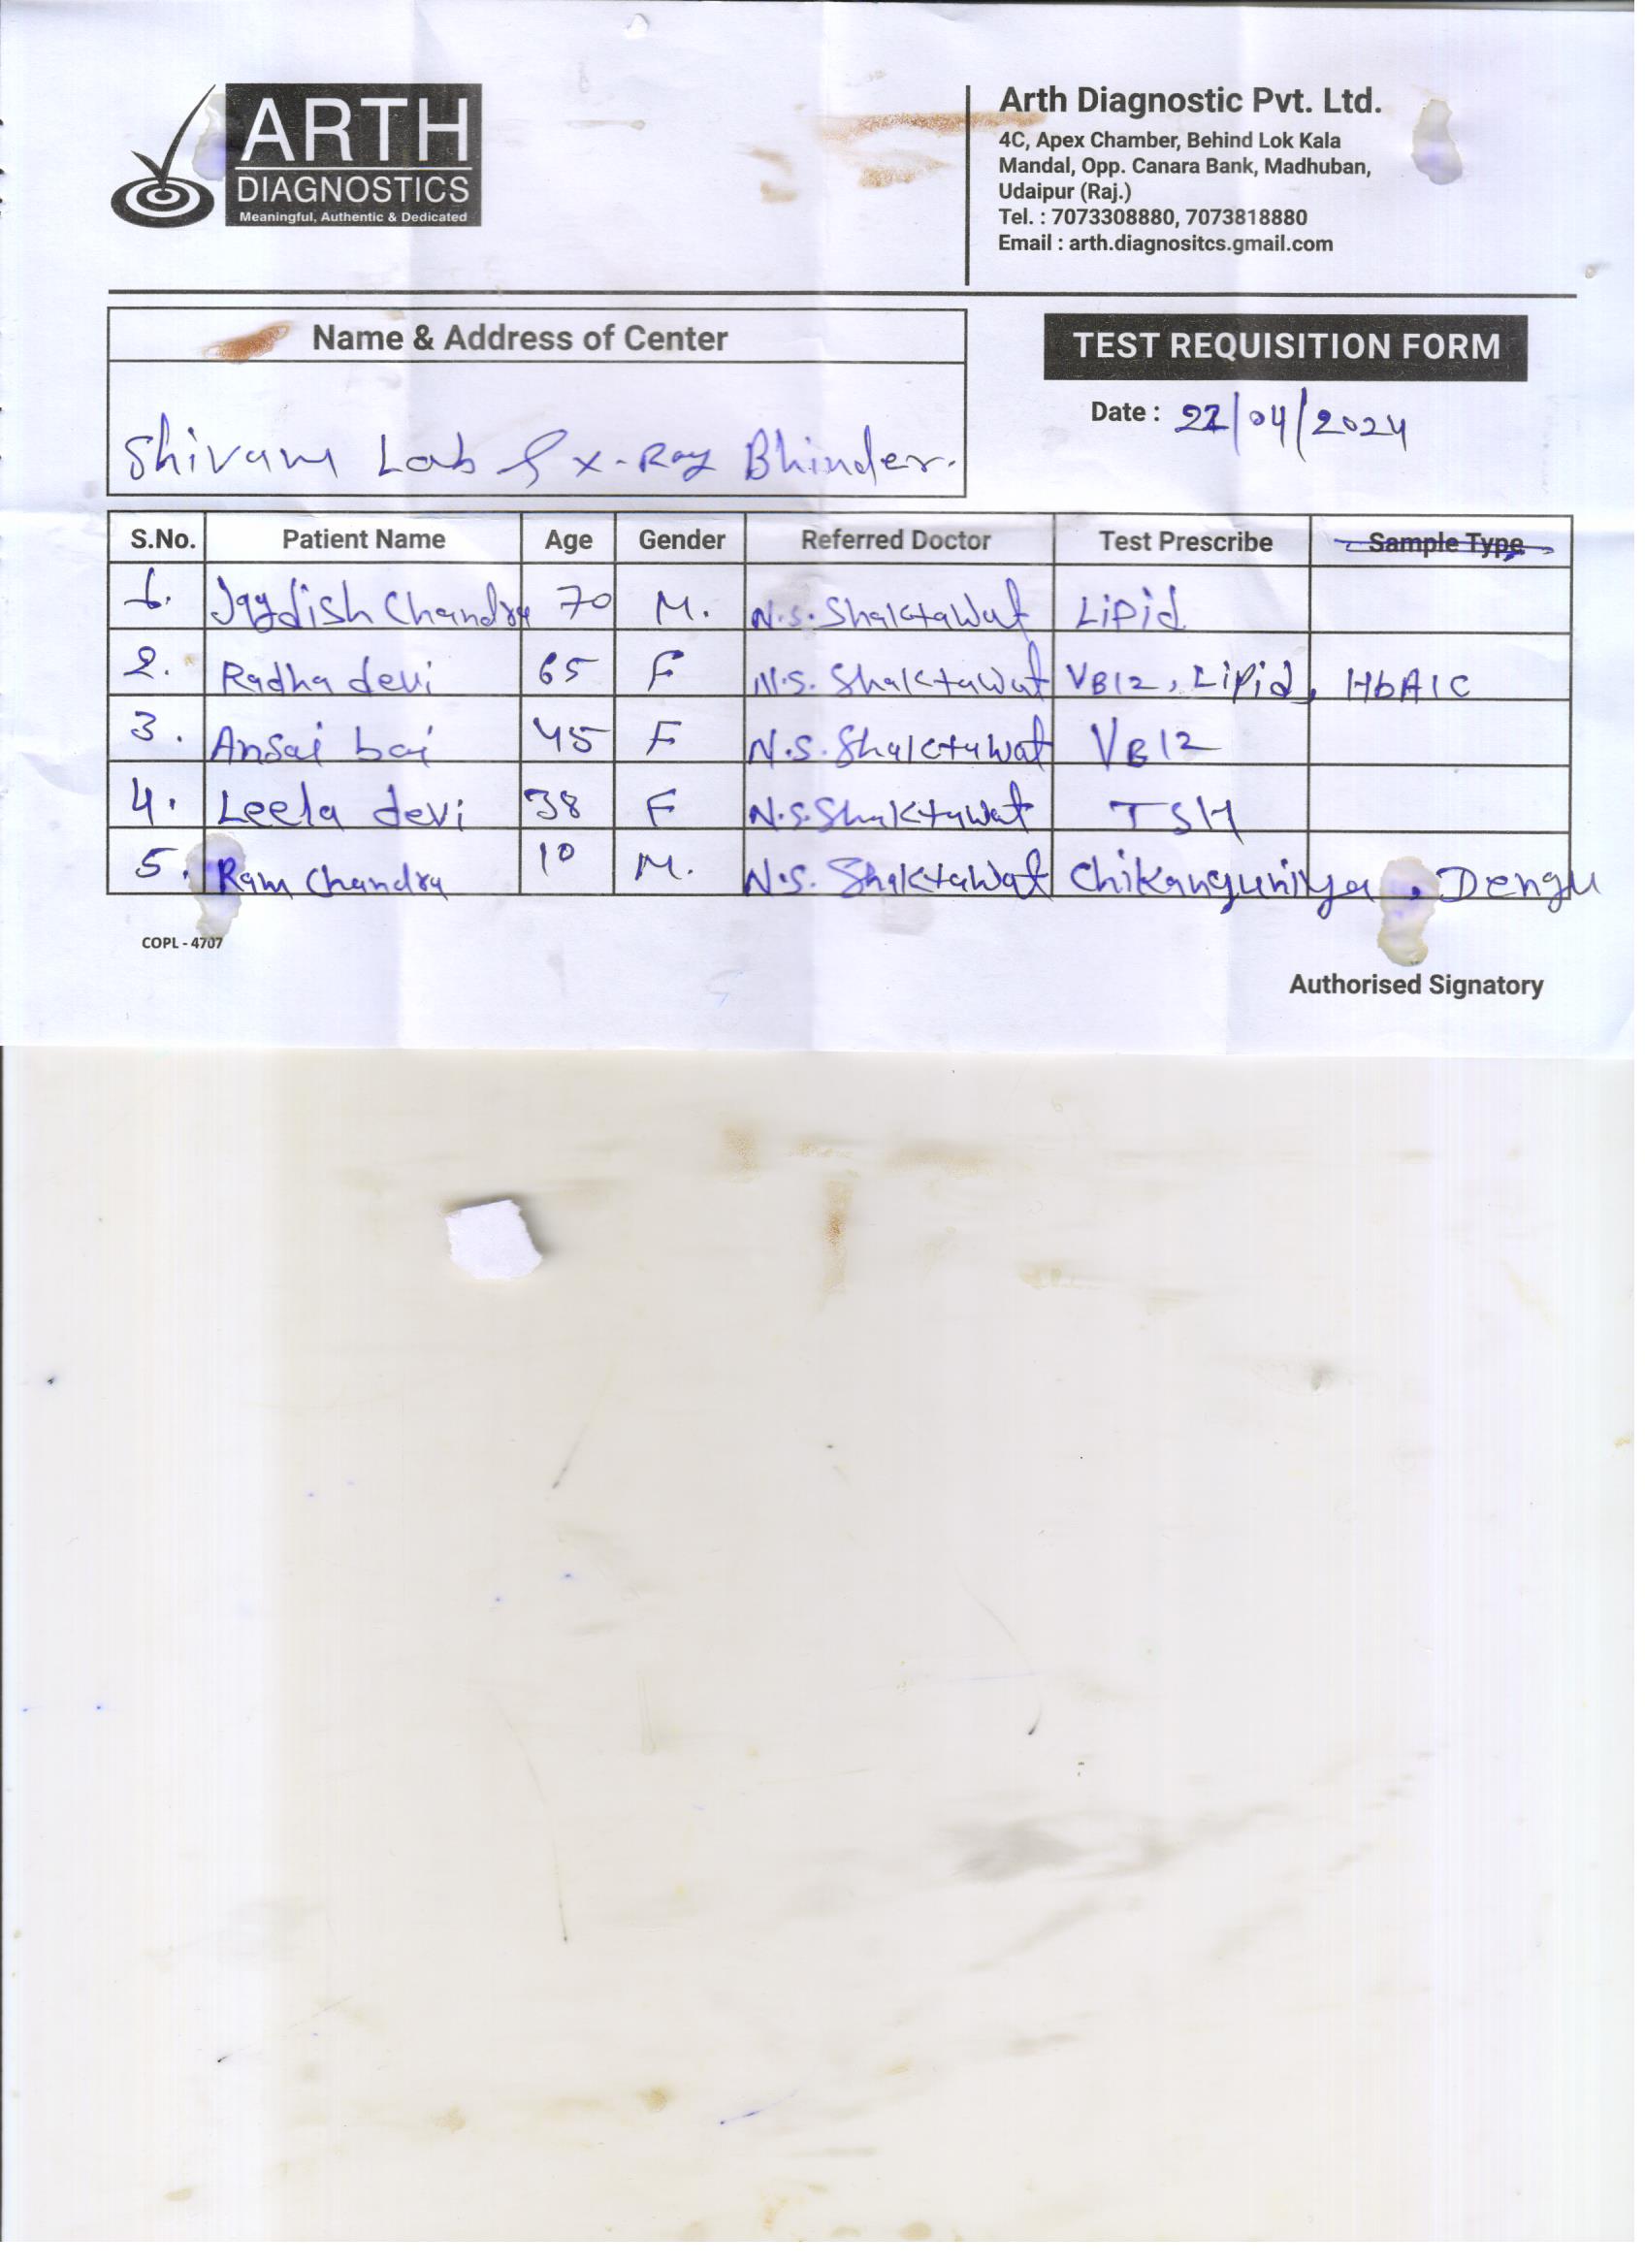 ARTH
DIAGNOSTICS
Meaningful, Authentic & Dedicated
Arth Diagnostic Pvt. Ltd.
4C, Apex Chamber, Behind Lok Kala
Mandal, Opp. Canara Bank, Madhuban,
Udaipur (Raj.)
Tel. : 7073308880, 7073818880
Email : arth.diagnositcs.gmail.com
Name & Address of Center
Shivam Lab & X-Ray Bhinder.
TEST REQUISITION FORM
Date : 22/04/2024
S.No. Patient Name Age Gender Referred Doctor Test Prescribe Sample Type
1. Jagdish Chandra 70 M. N.S. Shaktawat Lipid
2. Radha devi 65 F N.S. Shaktawat VB12, Lipid, HbA1C
3. Ansai bai 45 F N.S. Shaktawat VB12
4. Leela devi 38 F N.S. Shaktawat TSH
5. Ram Chandra 10 M. N.S. Shaktawat Chikanguniya, Dengu
COPL - 4707
Authorised Signatory